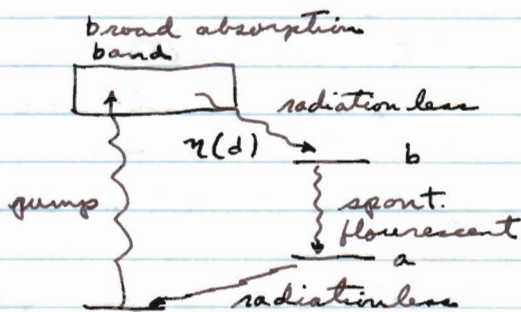 broad absorption
band
radiation less
η(d)
b
pump
spont.
flourescent
a
radiationless